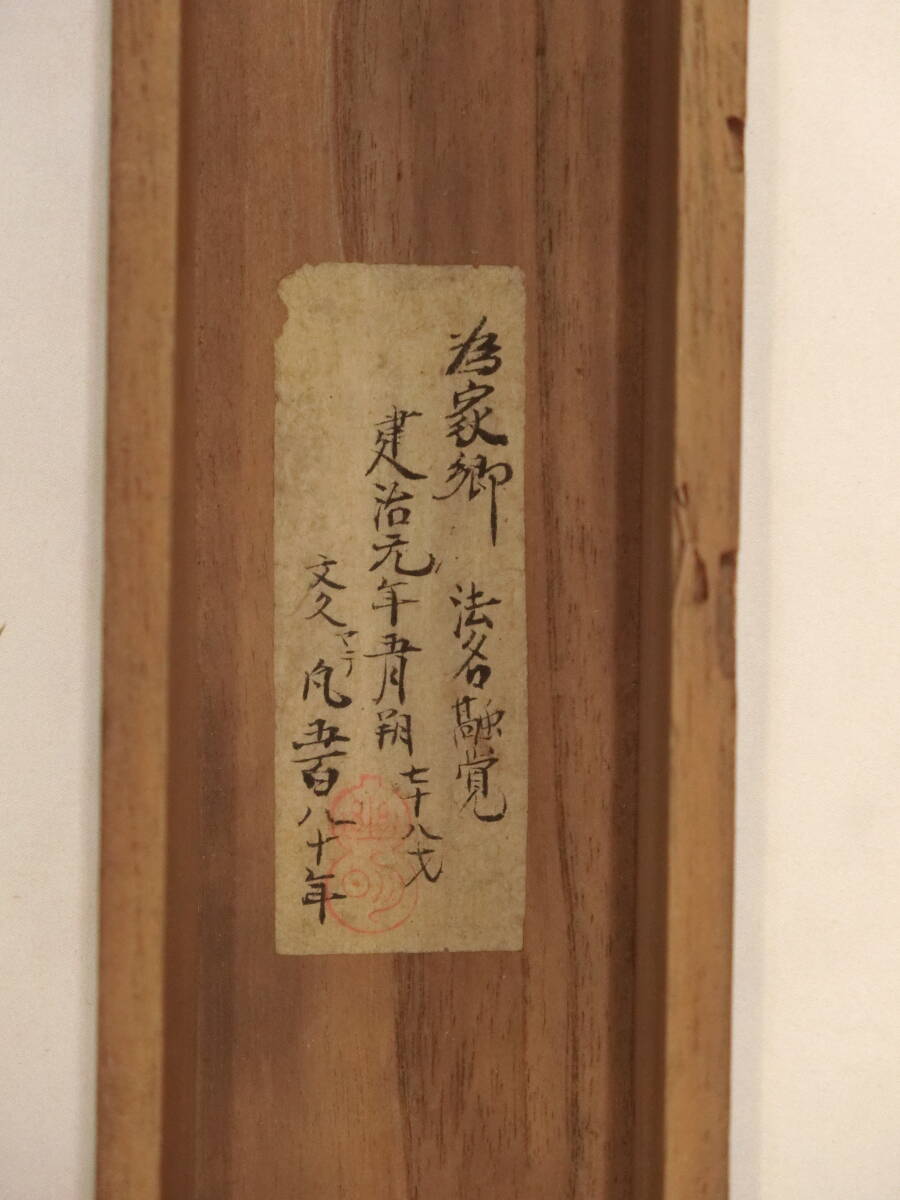 為家卿 法名融覚
建治元年五月朔 七十八才
文久マテ凡五百八十年